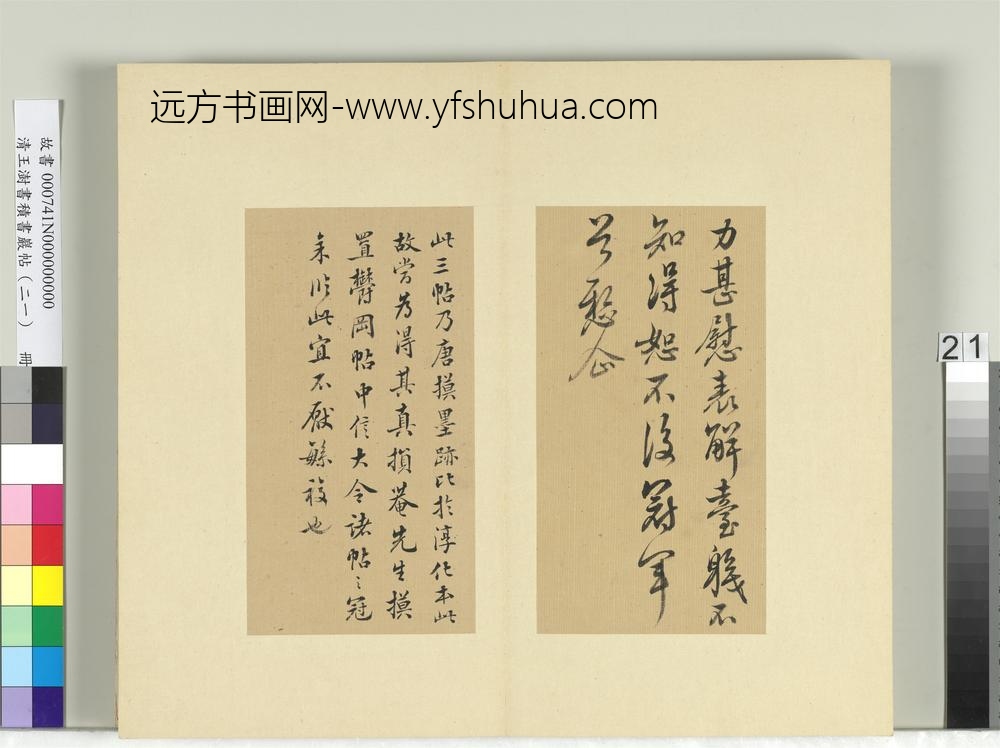 远方书画网-www.yfshuhua.com
故書 000741N000000000
清王澍書積書巖帖（二一） 冊
21
力甚慰表解臺 不
知得恕不後冠軍
企
此三帖乃唐摸墨跡比於淳化本此
故當為得其真損菴先生摸
置鬱岡帖中信大令諸帖之冠
余臨此宜不厭繁複也